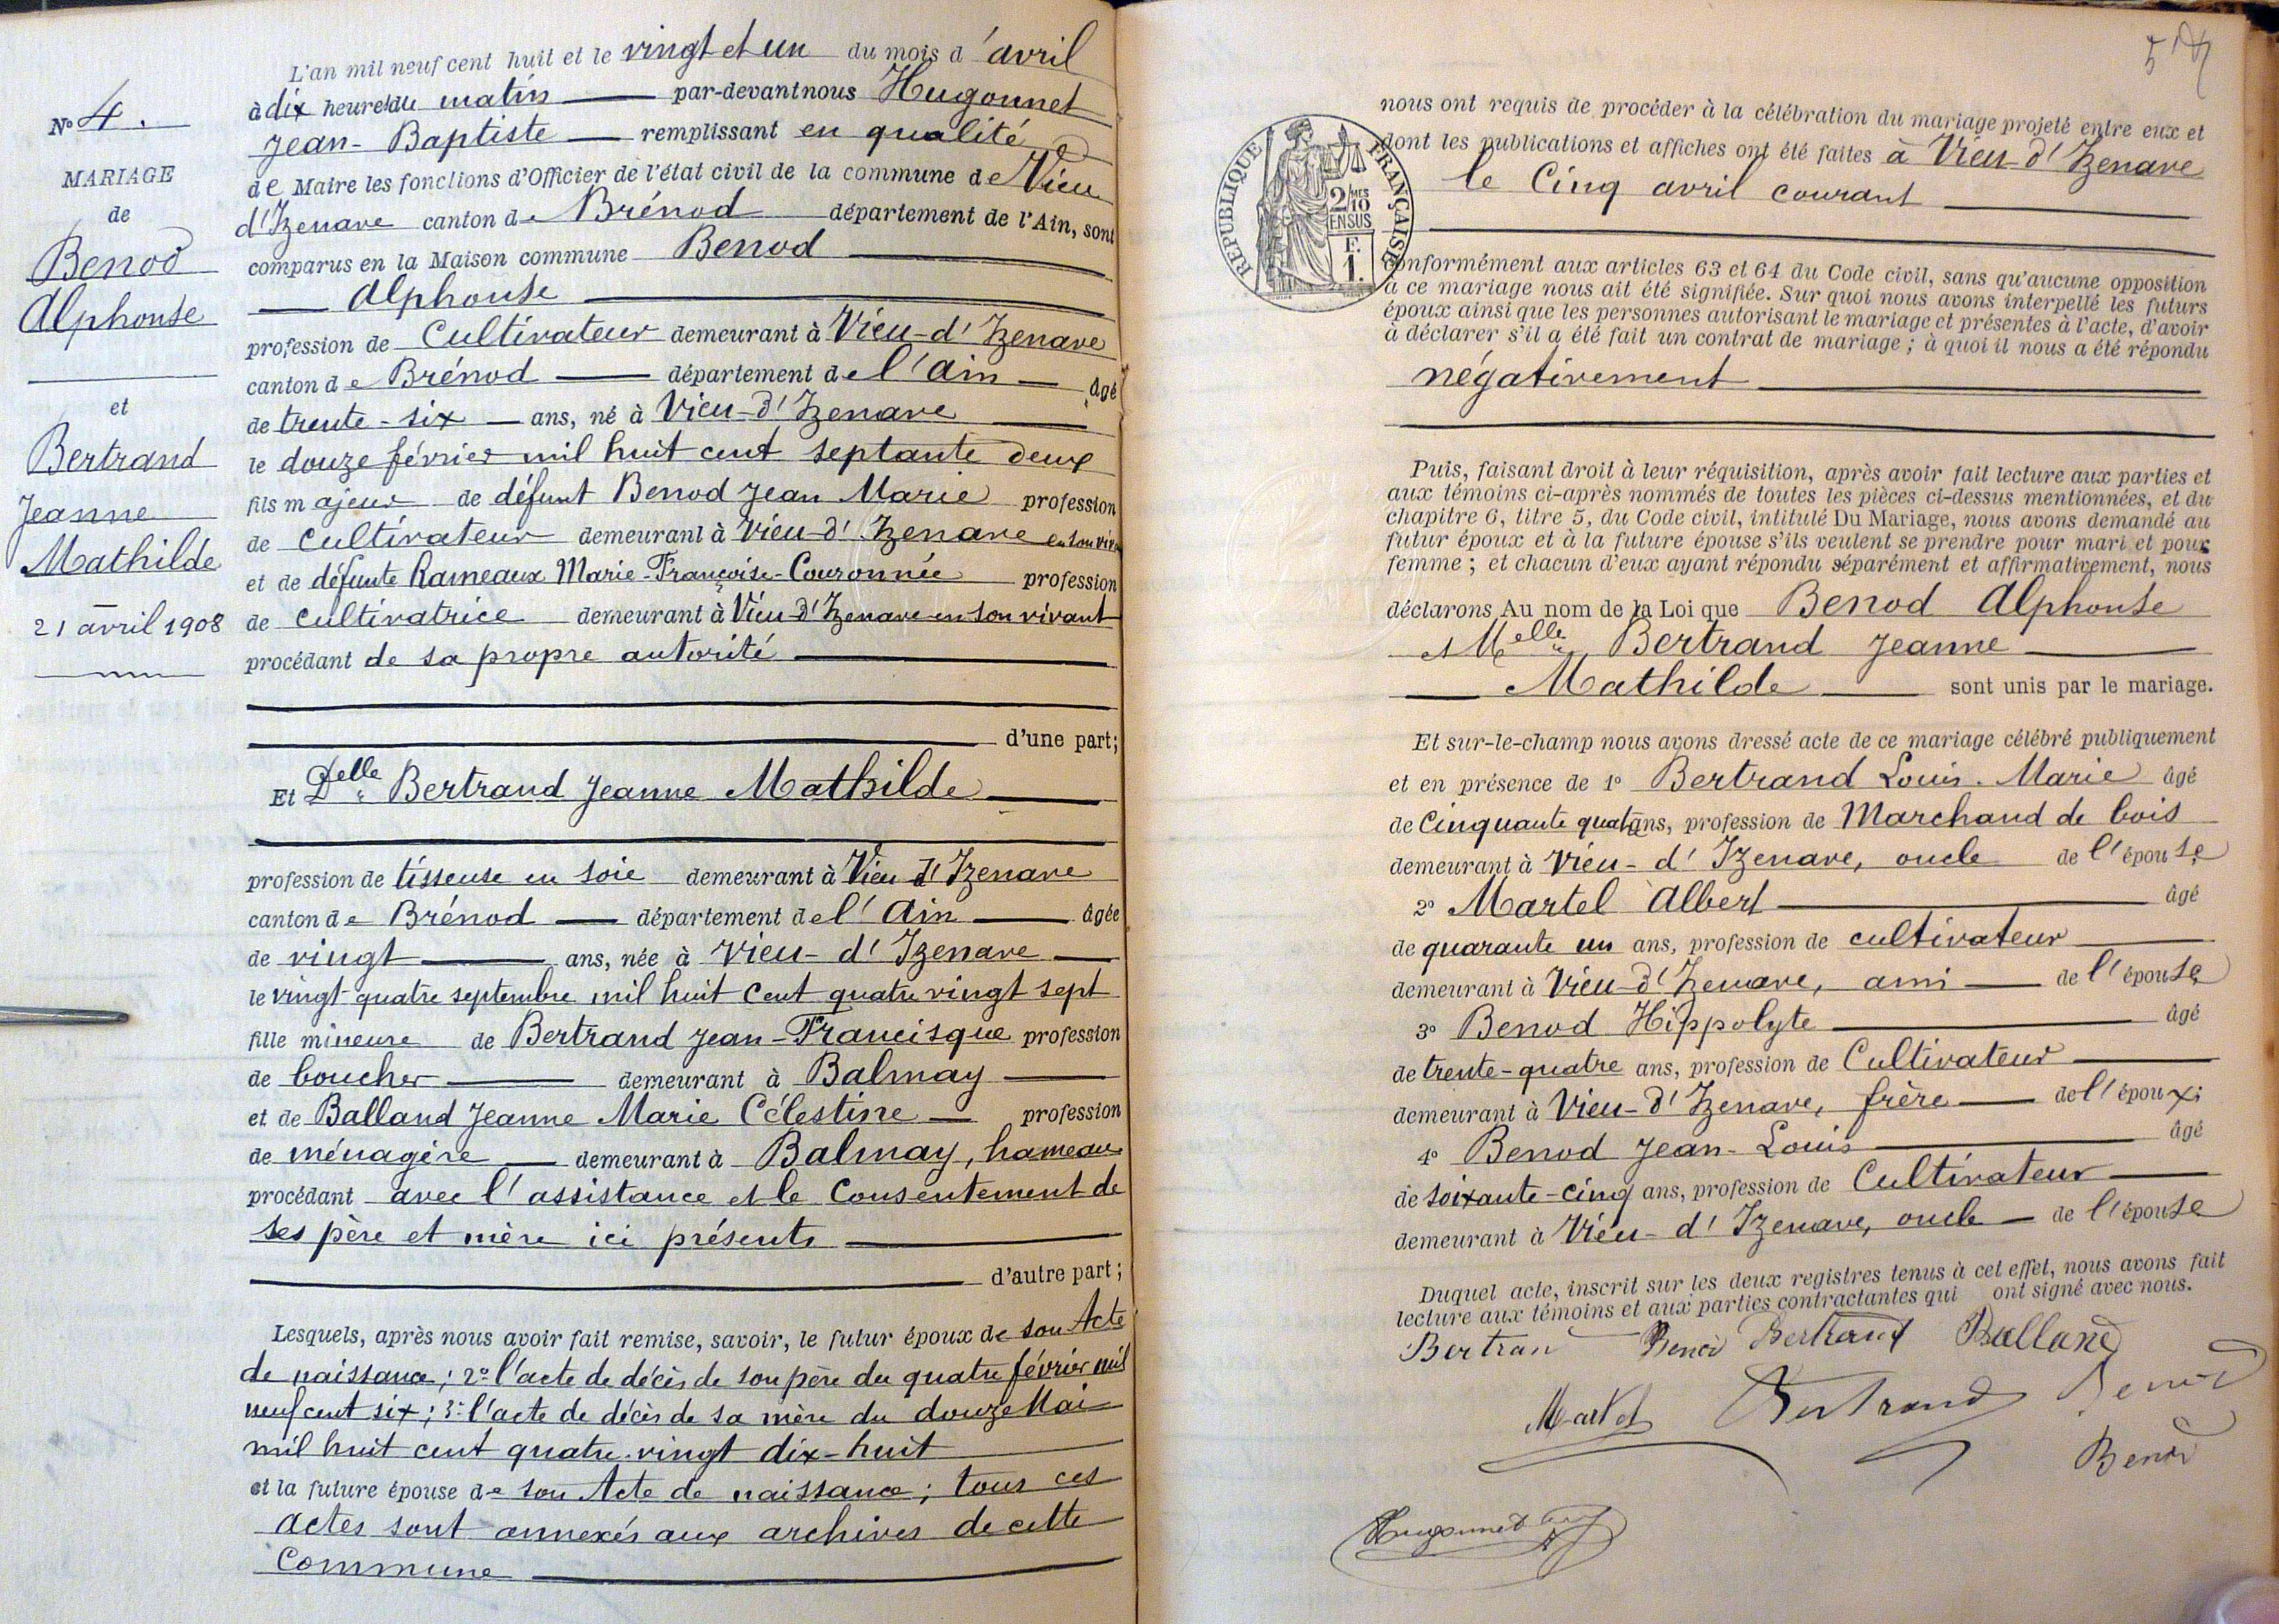 N° 4.
MARIAGE
de
Benod
Alphonse
et
Bertrand
Jeanne
Mathilde
21 avril 1908
L'an mil neuf cent huit et le vingt et un du mois d'avril
à dix heures du matin par-devant nous Hugonnet
Jean-Baptiste remplissant en qualité
de Maire les fonctions d'Officier de l'état civil de la commune de Vieu
d'Izenave canton de Brénod département de l'Ain, sont
comparus en la Maison commune Benod
Alphonse
profession de Cultivateur demeurant à Vieu-d'Izenave
canton de Brénod département de l'Ain âgé
de trente-six ans, né à Vieu-d'Izenave
le douze février mil huit cent septante deux
fils majeur de défunt Benod Jean Marie profession
de Cultivateur demeurant à Vieu-d'Izenave en son viva
et de défunte Rameaux Marie-Françoise-Couronnée profession
de cultivatrice demeurant à Vieu-d'Izenave en son vivant
procédant de sa propre autorité
d'une part;
Et Delle Bertrand Jeanne Mathilde
profession de tisseuse en soie demeurant à Vieu d'Izenave
canton de Brénod département de l'Ain âgée
de vingt ans, née à Vieu-d'Izenave
le vingt quatre septembre mil huit cent quatre vingt sept
fille mineure de Bertrand Jean-Francisque profession
de boucher demeurant à Balmay
et de Balland Jeanne Marie Célestine profession
de ménagère demeurant à Balmay, hameau
procédant avec l'assistance et le consentement de
ses père et mère ici présents
d'autre part;
Lesquels, après nous avoir fait remise, savoir, le futur époux de son Acte
de naissance; 2° l'acte de décès de son père du quatre février mil
neuf cent six; 3° l'acte de décès de sa mère du douze Mai
mil huit cent quatre-vingt dix-huit
et la future épouse de son Acte de naissance; tous ces
actes sont annexés aux archives de cette
Commune
RÉPUBLIQUE FRANÇAISE
2/10
MES
EN SUS
F.
1.
nous ont requis de procéder à la célébration du mariage projeté entre eux et
dont les publications et affiches ont été faites à Vieu-d'Izenave
le Cinq avril courant
conformément aux articles 63 et 64 du Code civil, sans qu'aucune opposition
à ce mariage nous ait été signifiée. Sur quoi nous avons interpellé les futurs
époux ainsi que les personnes autorisant le mariage et présentes à l'acte, d'avoir
à déclarer s'il a été fait un contrat de mariage; à quoi il nous a été répondu
négativement
Puis, faisant droit à leur réquisition, après avoir fait lecture aux parties et
aux témoins ci-après nommés de toutes les pièces ci-dessus mentionnées, et du
chapitre 6, titre 5, du Code civil, intitulé Du Mariage, nous avons demandé au
futur époux et à la future épouse s'ils veulent se prendre pour mari et pour
femme; et chacun d'eux ayant répondu séparément et affirmativement, nous
déclarons Au nom de la Loi que Benod Alphonse
et Melle Bertrand Jeanne
Mathilde sont unis par le mariage.
Et sur-le-champ nous avons dressé acte de ce mariage célébré publiquement
et en présence de 1° Bertrand Louis-Marie âgé
de Cinquante quatre ans, profession de Marchand de bois
demeurant à Vieu-d'Izenave, oncle de l'épouse
2° Martel Albert âgé
de quarante un ans, profession de cultivateur
demeurant à Vieu-d'Izenave, ami de l'épouse
3° Benod Hippolyte âgé
de trente-quatre ans, profession de Cultivateur
demeurant à Vieu-d'Izenave, frère de l'époux;
4° Benod Jean-Louis âgé
de soixante-cinq ans, profession de Cultivateur
demeurant à Vieu-d'Izenave, oncle de l'épouse
Duquel acte, inscrit sur les deux registres tenus à cet effet, nous avons fait
lecture aux témoins et aux parties contractantes qui ont signé avec nous.
Bertran Benod Bertrand Balland
Martel Bertrand Benod
Benod
Hugonnet